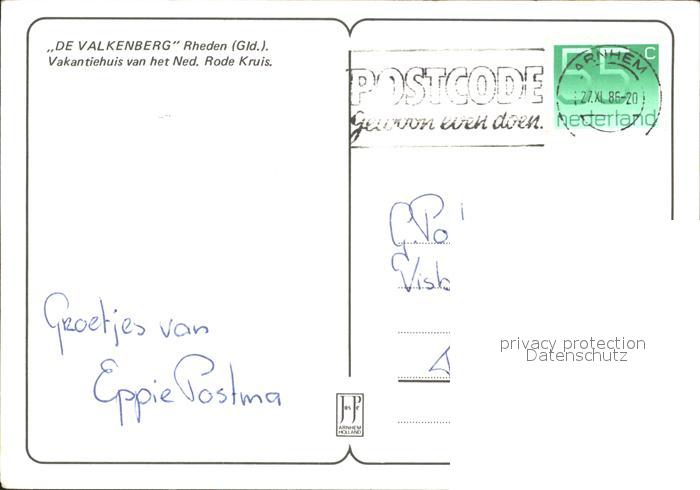 „DE VALKENBERG” Rheden (Gld.).
Vakantiehuis van het Ned. Rode Kruis.
POSTCODE
Gewoon even doen.
55 C
nederland
ARNHEM
27.XI.86-20
G. Po
Visb
Groetjes van
Eppie Postma
JosPé
ARNHEM
HOLLAND
privacy protection
Datenschutz